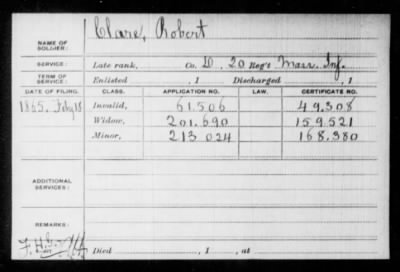 NAME OF SOLDIER: Clare, Robert
SERVICE: Late rank, Co. D, 20 Reg't Mass. Inf.
TERM OF SERVICE: Enlisted , 1 Discharged , 1
DATE OF FILING. CLASS. APPLICATION NO. LAW. CERTIFICATE NO.
1865, Feby 18 Invalid, 61.506 49.308
Widow, 201.690 159.521
Minor, 213 024 168.380
ADDITIONAL SERVICES:
REMARKS:
Died , 1 , at